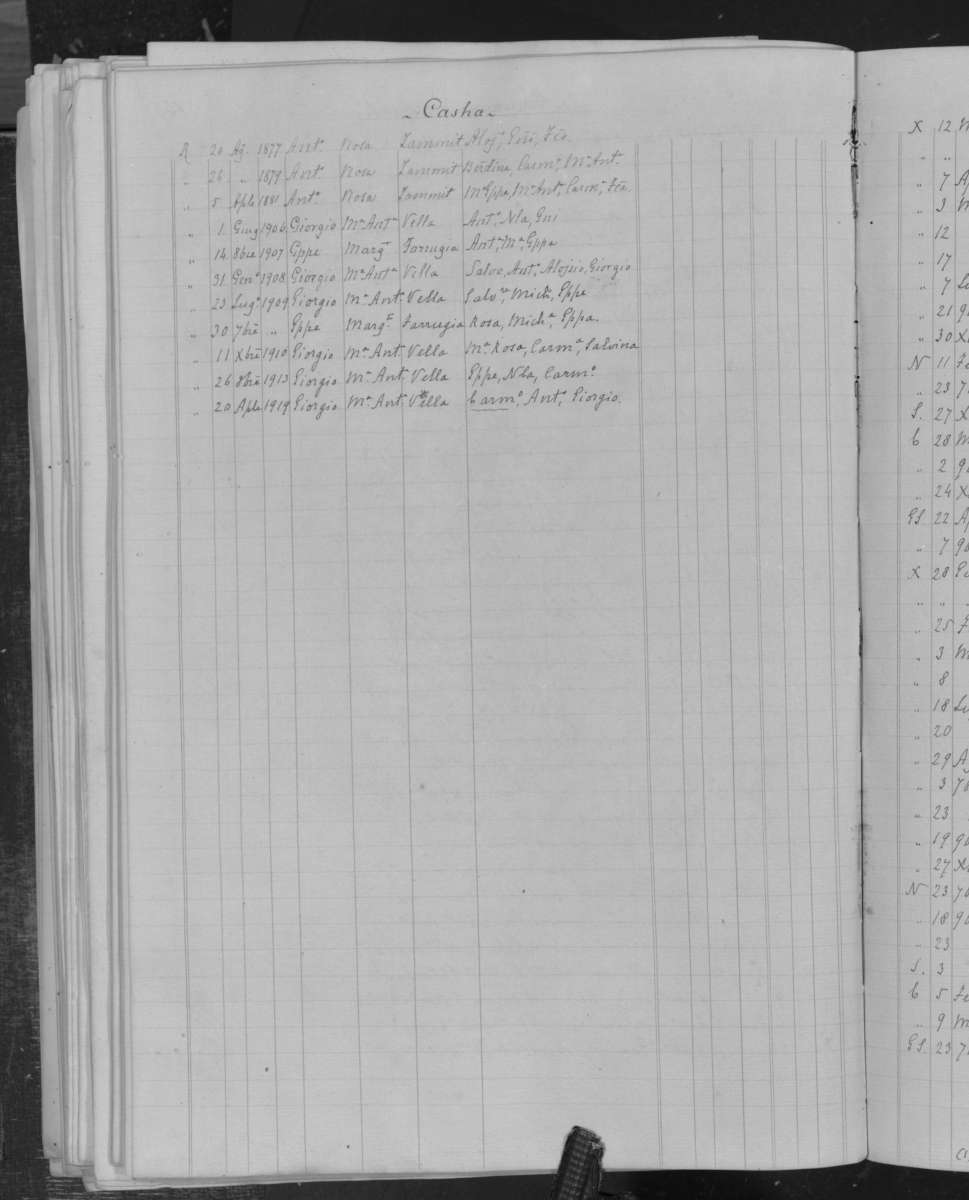 Casha
R 20 Ag. 1877 Antº Rosa Zammit Aloj,
„ 26 „ 1879 Antº Rosa Zammit Berdina, Carmª, Mª Antª
„ 5 Aple 1881 Antº Rosa Zammit Mª Gppa, Mª Antª, Carmª,
„ 1 Giug 1906 Giorgio Mª Antª Vella Antº, Nla, Gni
„ 14 8bre 1907 Gppe Margª Farrugia Antª, Mª, Gppa
„ 31 Genº 1908 Giorgio Mª Antª Vella Salvo, Antº, Alojsio, Giorgio
„ 23 Lugº 1909 Giorgio Mª Antª Vella Salvre, Michˡᵉ, Gppe
„ 30 7bre „ Gppe Margª Farrugia Rosa, Michª, Gppa.
„ 11 Xbre 1910 Giorgio Mª Antª Vella Mª Rosa, Carmª, Salvina
„ 26 8bre 1913 Giorgio Mª Antª Vella Gppe, Nla, Carmº
„ 20 Aple 1919 Giorgio Mª Antª Vella Carmº, Antº, Giorgio.
X 12 M
„ „
„ 7 A
„ 3 M
„ 12
„ 17
„ 7 Lu
„ 21 9b
„ 30 Xb
N 11 Fe
„ 23 7
S. 27 X
C 28 M
„ 2 9b
„ 24 X
GS. 22 Ap
„ 7 9b
X 28 Ge
„ „
„ 25 F
„ 3 M
„ 8
„ 18 Lu
„ 20
„ 29 A
„ 3 7b
„ 23
„ 19 9b
„ 27 Xb
N 23 7b
„ 18 9b
„ 23
S. 3
C 5 Fe
„ 9 M
GS. 23 7